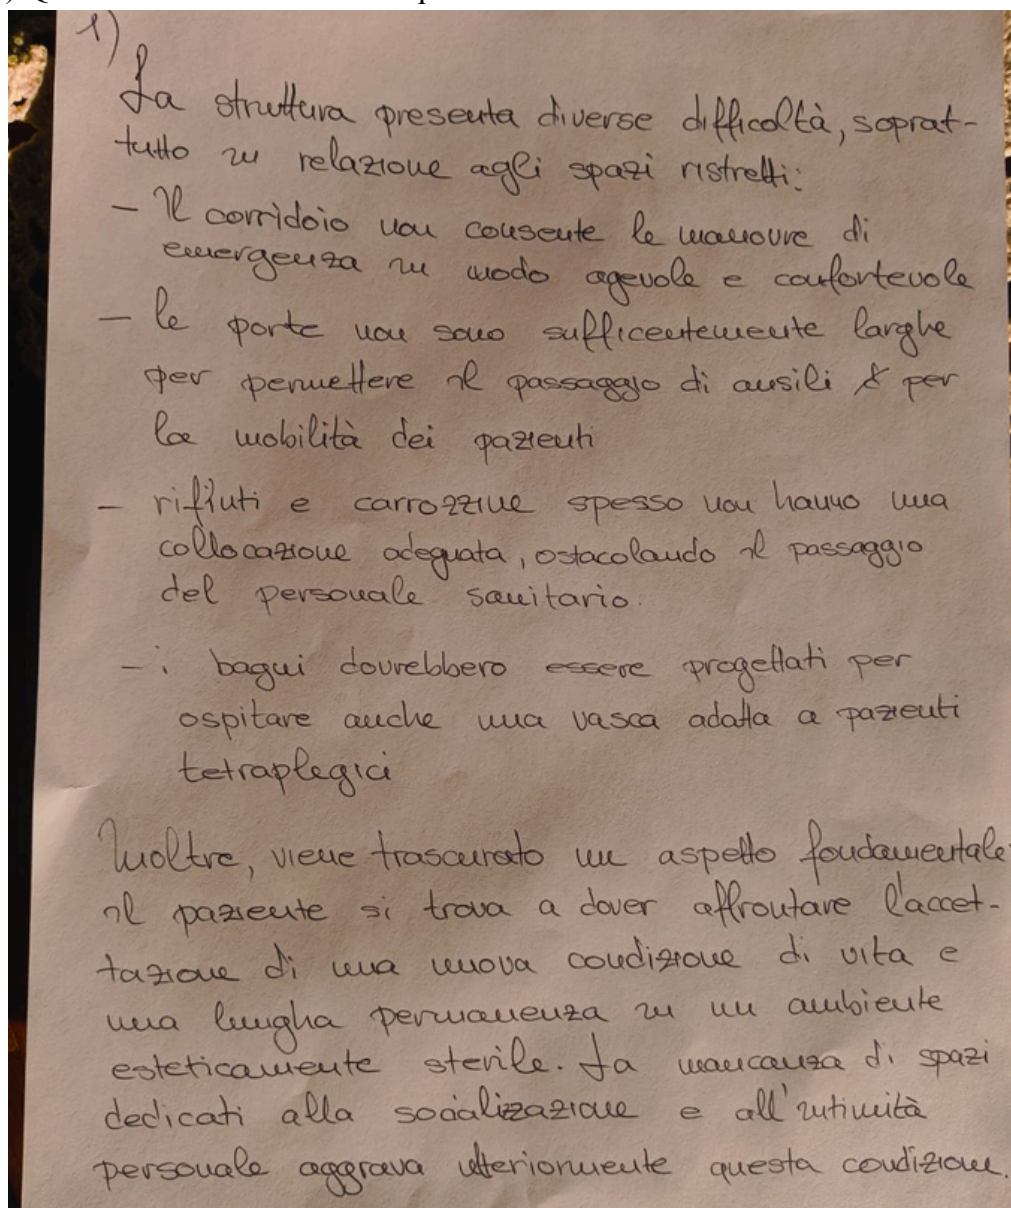 1)
La struttura presenta diverse difficoltà, soprat-
tutto in relazione agli spazi ristretti:
- Il corridoio non consente le manovre di
emergenza in modo agevole e confortevole
- le porte non sono sufficentemente larghe
per permettere il passaggio di ausili per
la mobilità dei pazienti
- rifiuti e carrozzine spesso non hanno una
collocazione adeguata, ostacolando il passaggio
del personale sanitario.
- i bagni dovrebbero essere progettati per
ospitare anche una vasca adatta a pazienti
tetraplegici
Inoltre, viene trascurato un aspetto fondamentale:
il paziente si trova a dover affrontare l'accet-
tazione di una nuova condizione di vita e
una lunga permanenza in un ambiente
esteticamente sterile. La mancanza di spazi
dedicati alla socializzazione e all'intimità
personale aggrava ulteriormente questa condizione.